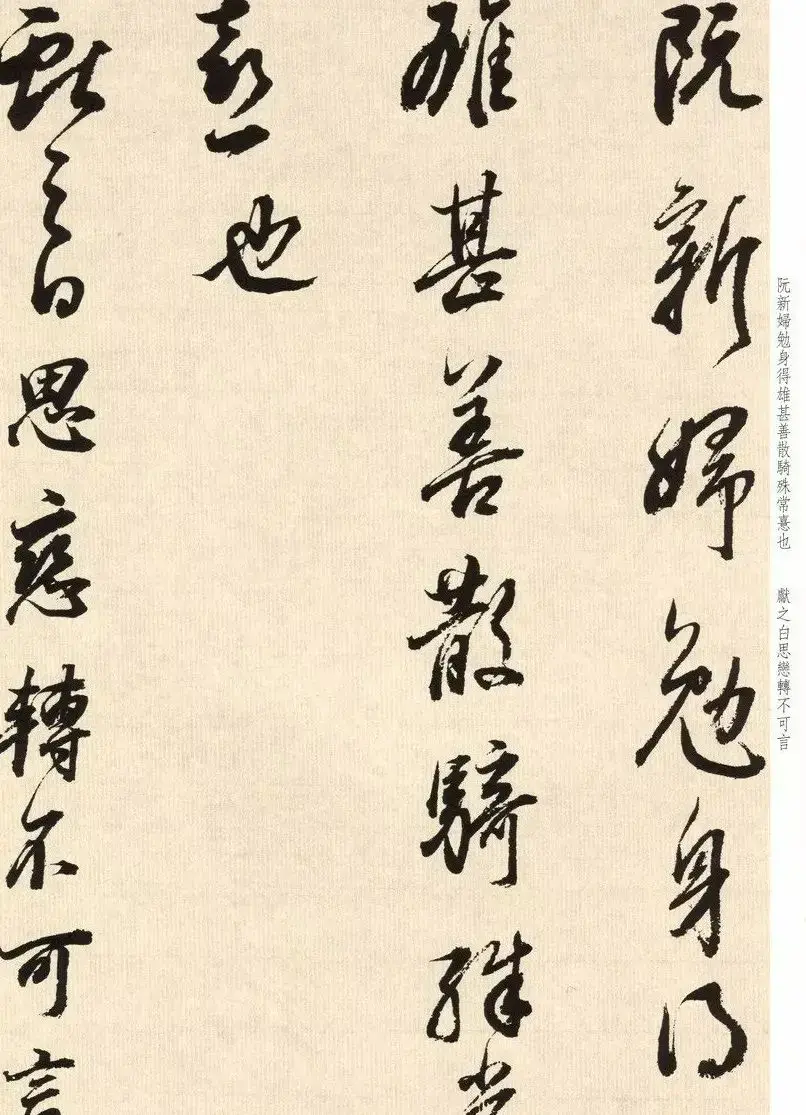 阮新婦勉身得
雄甚善散騎殊常
憙也
獻之白思戀轉不可言
阮新婦勉身得雄甚善散騎殊常憙也　獻之白思戀轉不可言